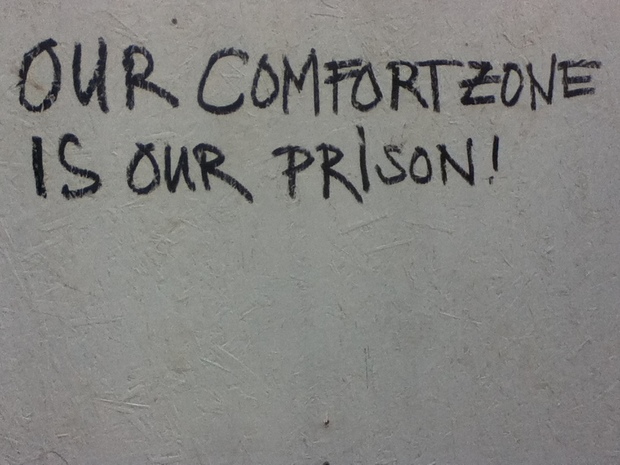 OUR COMFORTZONE
IS OUR PRISON!